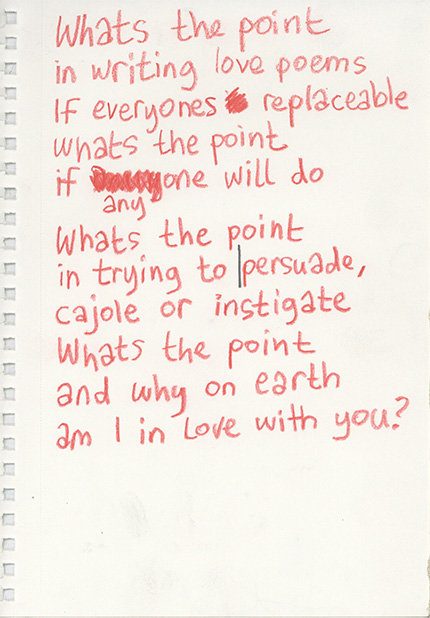 Whats the point
in writing love poems
If everyones replaceable
whats the point
if anyone will do
Whats the point
in trying to persuade,
cajole or instigate
Whats the point
and why on earth
am I in love with you?